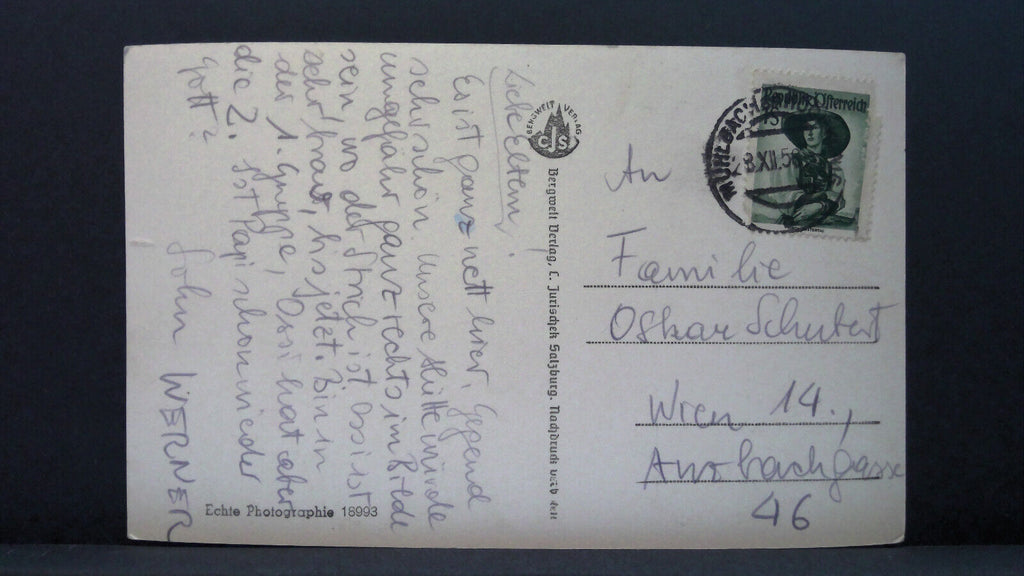 Liebe Eltern!
Es ist ganz nett hier, Gegend
sehr schön. Unsere Hütte würde
ungefähr ganz rechts im Bilde
sein, wo der Strich ist. Ossi ist
sehr brav, bis jetzt. Bin in
der 1. Gruppe, Ossi hat aber
die 2. Ist Papi schon wieder
gott?
John WERNER
Echte Photographie 18993
BERGWELT VERLAG
CJS
Bergwelt Verlag, C. Jurischek Salzburg. Nachdruck
Republik Österreich
MÜHLBACH
XII.56
An
Familie
Oskar Schubert
Wien 14.,
Ansbachgasse
46